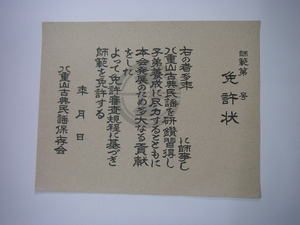 師範第　号
免許状
右の者多年　　に師事し
八重山古典民謡を研鑽習得し
子弟養成に尽力するとともに
本会発展のため多大なる貢献
をした
よって免許審査規程に基づき
師範を免許する
年　月　日
八重山古典民謡保存会